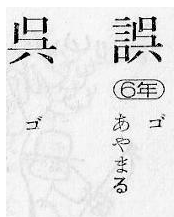 誤
6年
ゴ
あやまる
呉
ゴ